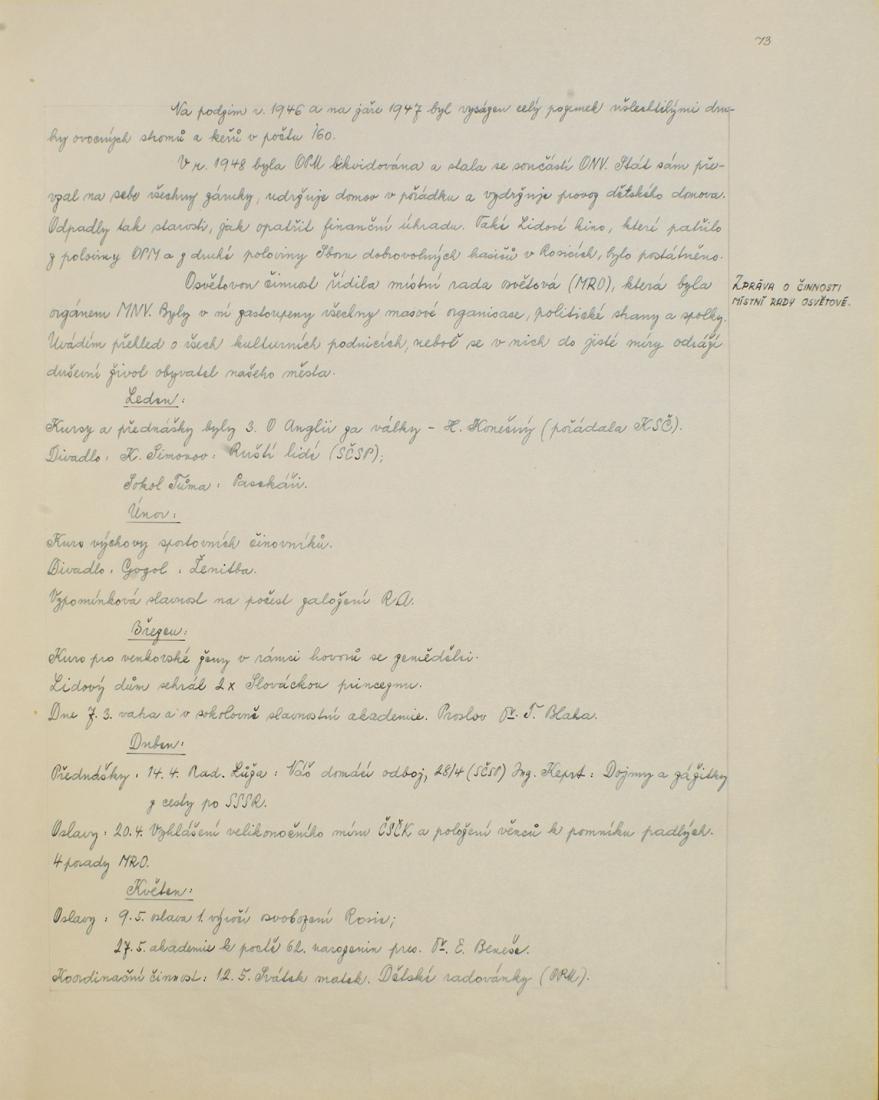 73
Na podzim r. 1946 a na jaře 1947 byl vysázen celý pozemek ušlechtilými dru-
hy ovocných stromů a keřů v počtu 160.
V r. 1948 byla OPM likvidována a stala se součástí ONV. Stát sám pře-
vzal na sebe všechny záruky, udržuje domov v pořádku a vydržuje provoz dětského domova.
Odpadly tak starosti, jak opatřit finanční úhradu. Také Lidové kino, které patřilo
z poloviny OPM a z druhé poloviny Sboru dobrovolných hasičů v Rosicích, bylo postátněno.
Osvětovou činnost řídila místní rada osvětová (MRO), která byla
orgánem MNV. Byly v ní zastoupeny všechny masové organisace, politické strany a spolky.
Uvádím přehled o všech kulturních podnicích, neboť se v nich do jisté míry odráží
duševní život obyvatel našeho města.
ZPRÁVA O ČINNOSTI
MÍSTNÍ RADY OSVĚTOVÉ.
Leden:
Kursy a přednášky byly 3. O Anglii za války - H. Konečný (pořádala KSČ).
Divadlo: K. Simonov: Ruští lidé (SČSP);
Sokol Tůma: Pasekáři.
Únor:
Kurs výchovy sportovních činovníků.
Divadlo: Gogol: Ženitba.
Vzpomínková slavnost na počest založení R.A.
Březen:
Kurs pro venkovské ženy v rámci hovorů se zemědělci.
Lidový dům sehrál 2x Slováckou princeznu.
Dne 7. 3. v sokolovně slavnostní akademie. Proslov Dr. T. Blaha.
Duben:
Přednášky: 14. 4. Rad. Lůža: Náš domácí odboj, 28/4 (SČSP) Ing. Keprt: Dojmy a zážitky
z cesty po SSSR.
Oslavy: 20. 4. Vyhlášení velikonočního míru ČSČK a položení věnců k pomníku padlých.
4 porady MRO.
Květen:
Oslavy: 9. 5. oslava 1. výročí osvobození Rosic;
27. 5. akademie k poctě 62. narozenin pres. Dr. E. Beneše.
Koordinační činnost: 12. 5. Svátek matek. Dětské radovánky (OPM).